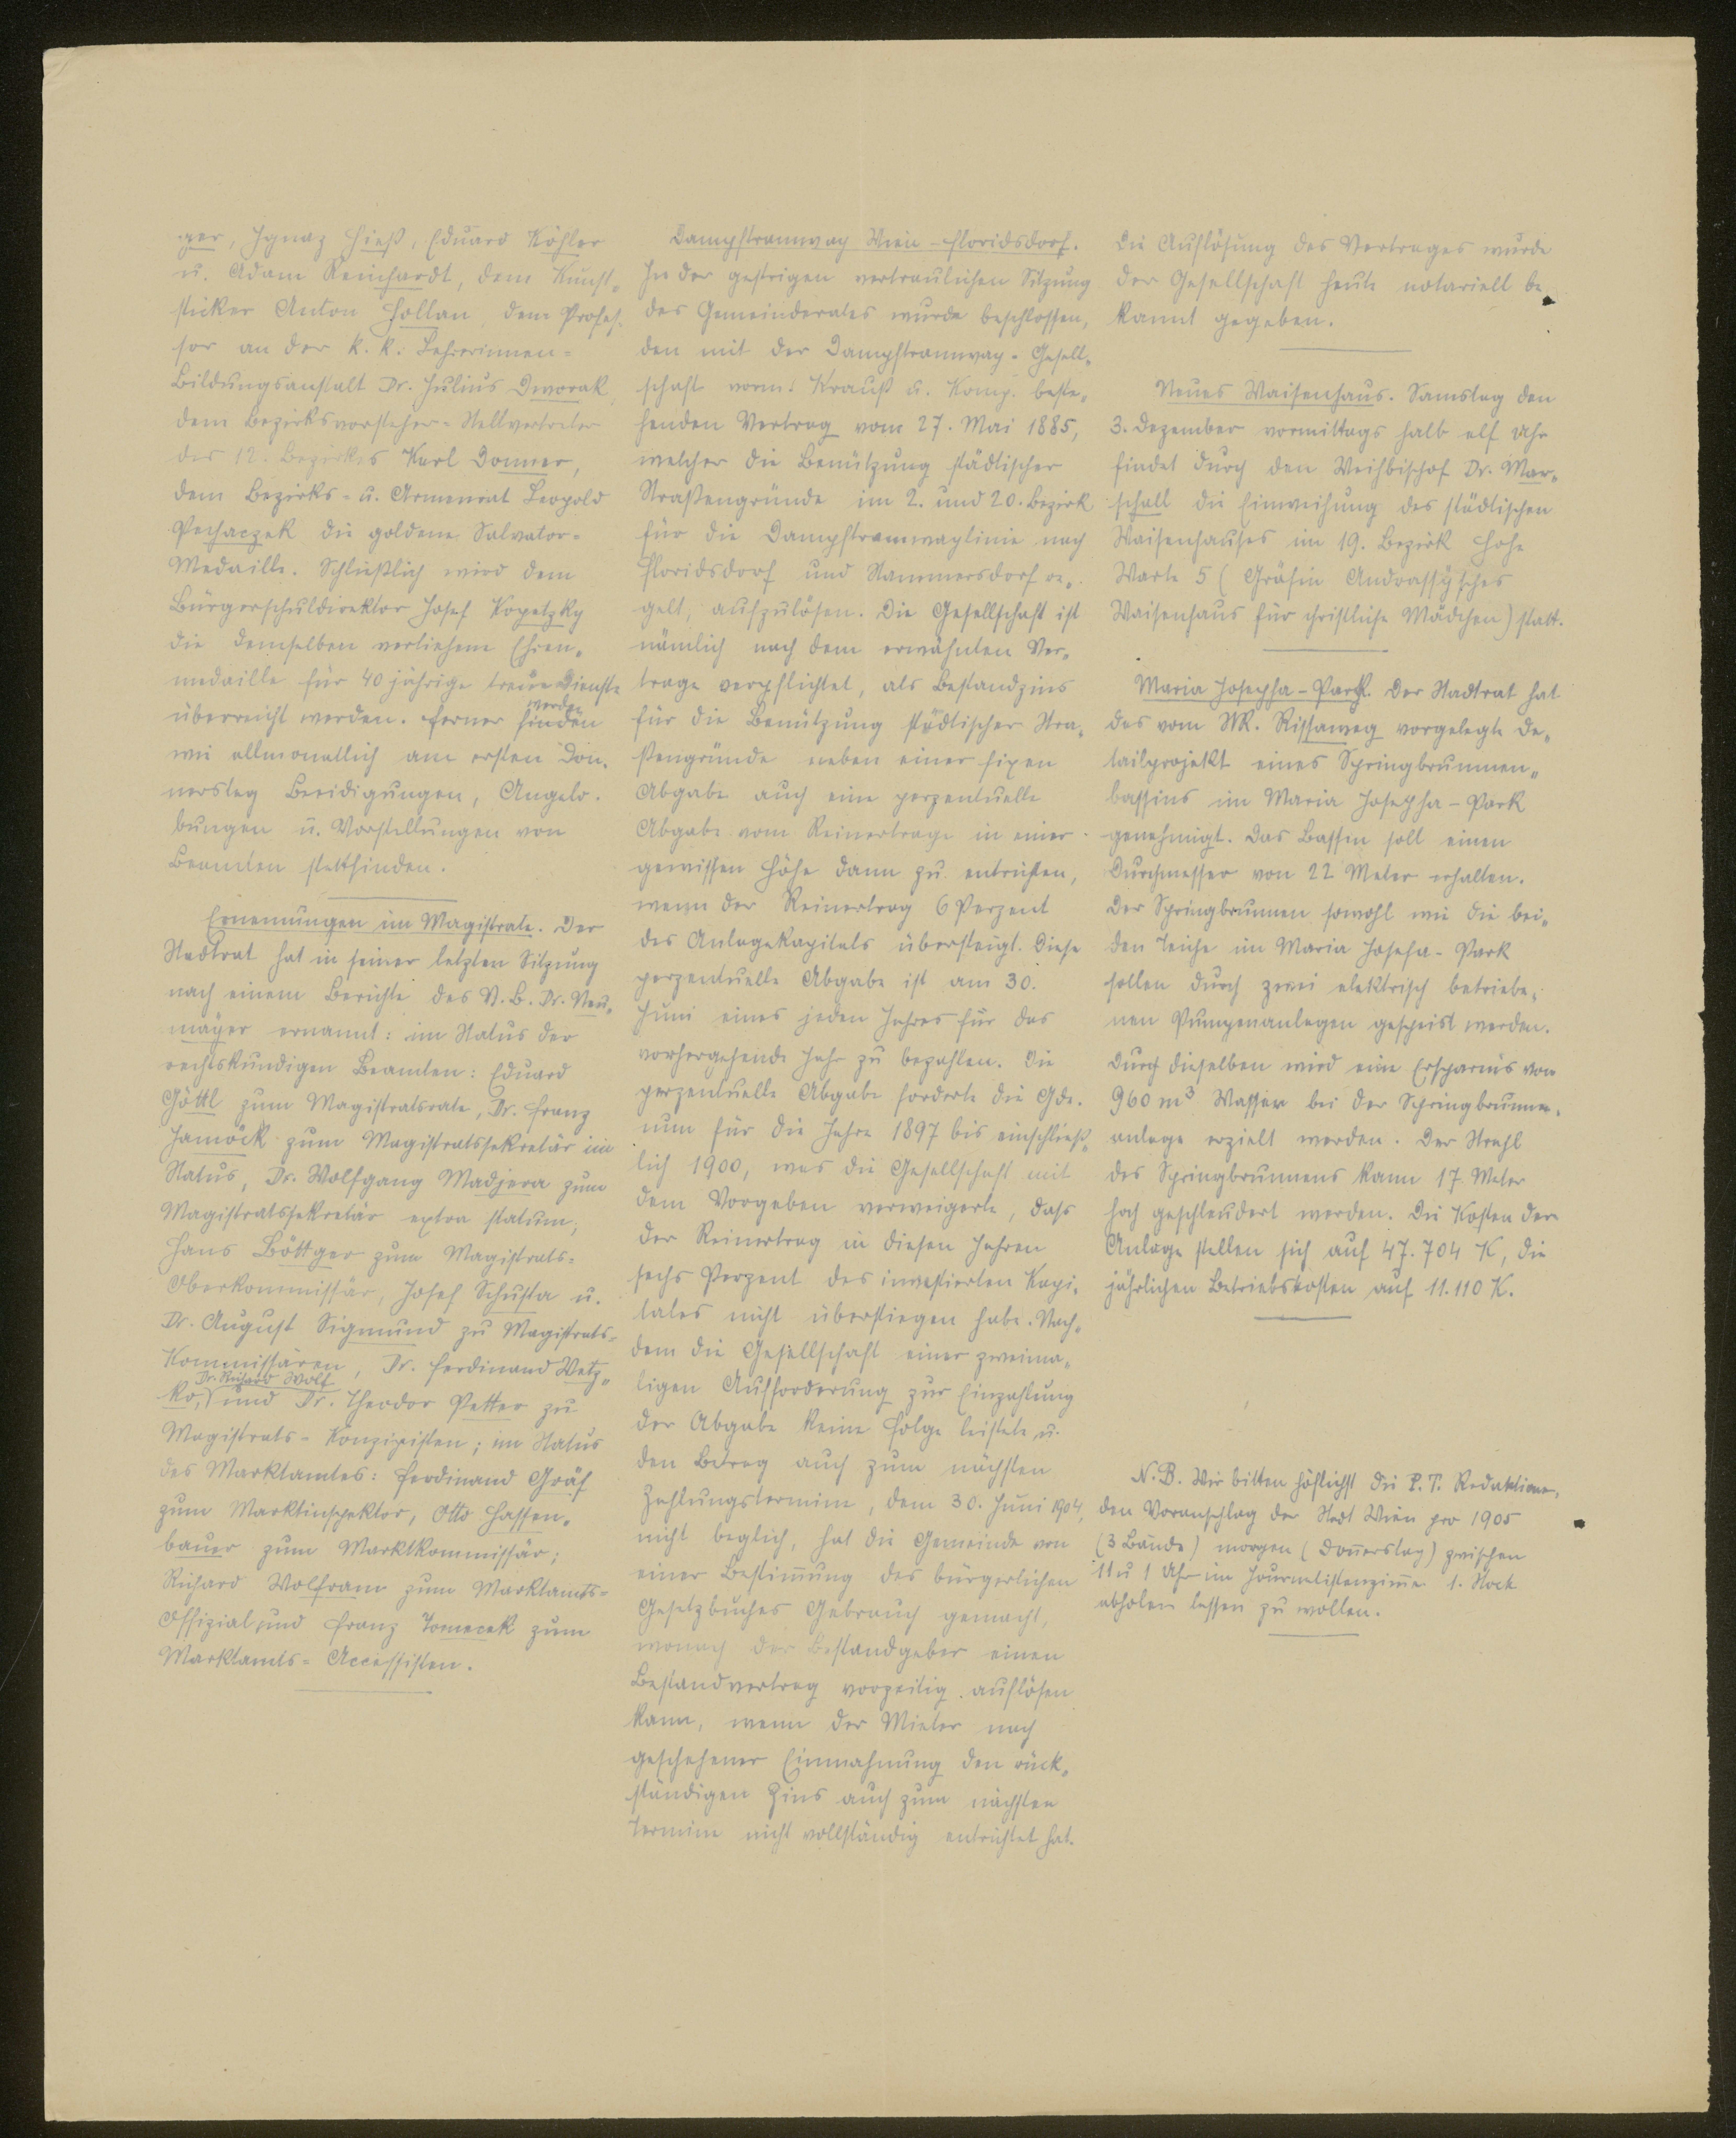 ger, Ignaz Hieß, Eduard Köhler
u. Adam Reinhardt, dem Kunst„
sticker Anton Hollan, dem Profes„
sor an der k. k. Lehrerinnen=
Bildungsanstalt Dr. Julius Dworak,
dem Bezirksvorsteher=Stellvertreter
des 12. Bezirkes Karl Donner,
dem Bezirks= u. Armenrat Leopold
Pechaczek die goldene Salvator=
Medaille. Schließlich wird dem
Bürgerschuldirektor Josef Kopetzky
die demselben verliehene Ehren„
medaille für 40 jährige treue Dienste
überreicht werden. Ferner werden
wie allmonatlich am ersten Don„
nerstag Beeidigungen, Angelo„
bungen u. Vorstellungen von
Beamten stattfinden.
Ernennungen im Magistrate. Der
Stadtrat hat in seiner letzten Sitzung
nach einem Berichte des V. B. Dr. Neu„
mayer ernannt: im Status der
rechtskundigen Beamten: Eduard
Göttl zum Magistratsrate, Dr. Franz
Jamöck zum Magistratssekretär im
Status, Dr. Wolfgang Madjera zum
Magistratssekretär extra statum;
Hans Böttger zum Magistrats=
Oberkommissär, Josef Schusta u.
Dr. August Sigmund zu Magistrats=
Kommissären, Dr. Ferdinand Watz„
ko, Dr. Richard Wolf und Dr. Theodor Petter zu
Magistrats=Konzipisten; im Status
des Marktamtes: Ferdinand Gräf
zum Marktinspektor, Otto Hassen„
bauer zum Marktkommissär;
Richard Wolfram zum Marktamts=
Offizial und Franz Tomecek zum
Marktamts=Accessisten.
Dampftramway Wien-Floridsdorf.
In der gestrigen vertraulichen Sitzung
des Gemeinderates wurde beschlossen,
den mit der Dampftramway-Gesell„
schaft vorm. Krauß u. Komp. beste„
henden Vertrag vom 27. Mai 1885,
welcher die Benützung städtischer
Straßengründe im 2. und 20. Bezirk
für die Dampftramwaylinie nach
Floridsdorf und Stammersdorf re„
gelt, aufzulösen. Die Gesellschaft ist
nämlich nach dem erwähnten Ver„
trage verpflichtet, als Bestandzins
für die Benützung städtischer Stra„
ßengründe neben einer fixen
Abgabe auch eine perzentuelle
Abgabe vom Reinertrage in einer
gewissen Höhe dann zu entrichten,
wenn der Reinertrag 6 Perzent
des Anlagekapitals übersteigt. Diese
perzentuelle Abgabe ist am 30.
Juni eines jeden Jahres für das
vorhergehende Jahr zu bezahlen. Die
perzentuelle Abgabe forderte die Gde.
nun für die Jahre 1897 bis einschließ„
lich 1900, was die Gesellschaft mit
dem Vorgeben verweigerte, dass
der Reinertrag in diesen Jahren
sechs Perzent des investierten Kapi„
tales nicht überstiegen habe. Nach„
dem die Gesellschaft einer zweima„
ligen Aufforderung zur Einzahlung
der Abgabe keine Folge leistete u.
den Betrag auch zum nächsten
Zahlungstermine, dem 30. Juni 1904,
nicht beglich, hat die Gemeinde von
einer Bestim̄ung des bürgerlichen
Gesetzbuches Gebrauch gemacht,
wonach der Bestandgeber einen
Bestandvertrag vorzeitig auflösen
kann, wenn der Mieter nach
geschehener Einmahnung den rück„
ständigen Zins auch zum nächsten
Termine nicht vollständig entrichtet hat.
Die Auflösung des Vertrages wurde
der Gesellschaft heute notariell be„
kannt gegeben.
Neues Waisenhaus. Samstag den
3. Dezember vormittags halb elf Uhr
findet durch den Weihbischof Dr. Mar„
schall die Einweihung des städtischen
Waisenhauses im 19. Bezirk Hohe
Warte 5 (Gräfin Andrassy'sches
Waisenhaus für christliche Mädchen) statt.
Maria Josepha-Park. Der Stadtrat hat
das vom StR. Rissaweg vorgelegte De„
tailprojekt eines Springbrunnen„
bassins im Maria Josepha-Park
genehmigt. Das Bassin soll einen
Durchmesser von 22 Meter erhalten.
Der Springbrunnen sowohl wie die bei„
den Teiche im Maria Josefa-Park
sollen durch zwei elektrisch betriebe„
nen Pumpenanlagen gespeist werden.
Durch dieselben wird eine Ersparnis von
960 m³ Wasser bei der Springbrunnen„
anlage erzielt werden. Der Strahl
des Springbrunnens kann 17 Meter
hoch geschleudert werden. Die Kosten der
Anlage stellen sich auf 47.704 K, die
jährlichen Betriebskosten auf 11.110 K.
N.B. Wir bitten höflichst die P. T. Redaktionen,
den Voranschlag der Stadt Wien pro 1905
(3 Bände) morgen (Don̄erstag) zwischen
11 u 1 Uhr im Journalistenzim̄er 1. Stock
abholen lassen zu wollen.